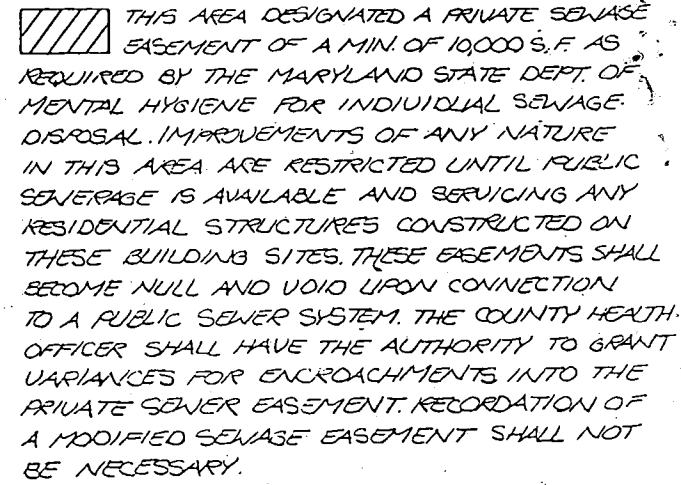 THIS AREA DESIGNATED A PRIVATE SEWAGE
EASEMENT OF A MIN. OF 10,000 S.F. AS
REQUIRED BY THE MARYLAND STATE DEPT. OF
MENTAL HYGIENE FOR INDIVIDUAL SEWAGE
DISPOSAL. IMPROVEMENTS OF ANY NATURE
IN THIS AREA ARE RESTRICTED UNTIL PUBLIC
SEWERAGE IS AVAILABLE AND SERVICING ANY
RESIDENTIAL STRUCTURES CONSTRUCTED ON
THESE BUILDING SITES. THESE EASEMENTS SHALL
BECOME NULL AND VOID UPON CONNECTION
TO A PUBLIC SEWER SYSTEM. THE COUNTY HEALTH
OFFICER SHALL HAVE THE AUTHORITY TO GRANT
VARIANCES FOR ENCROACHMENTS INTO THE
PRIVATE SEWER EASEMENT. RECORDATION OF
A MODIFIED SEWAGE EASEMENT SHALL NOT
BE NECESSARY.